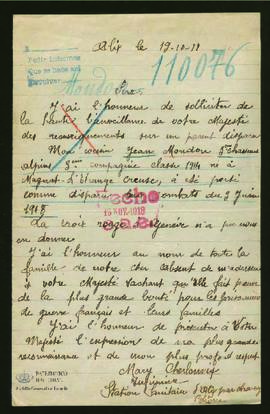 Pedir informe
que se hace así
Alix le 19-10-18
110076
Moudon
Sire
J'ai l'honneur de solliciter de
la haute bienveillance de votre Majesté
des renseignements sur un parent disparu
Mon cousin Jean Moudon 5e Chasseurs
alpins 8me compagnie classe 1914 né à
Magnat-L'Etrange Creuse, a été porté
comme disparu combats du 2 Juin
1918
15 NOV. 1918
La croix rouge n'a pu nous
en donner
J'ai l'honneur au nom de toute la
famille de notre cher absent de m'adresser
à votre Majesté sachant qu'Elle fait preuve
de la plus grande bonté pour les prisonniers
de guerre français et leurs familles
J'ai l'honneur de présenter à Votre
Majesté l'expression de ma plus grande
reconnaissance et de mon plus profond respect
Mary
Infirmière
Station Sanitaire par
PATRIMONIO
NACIONAL